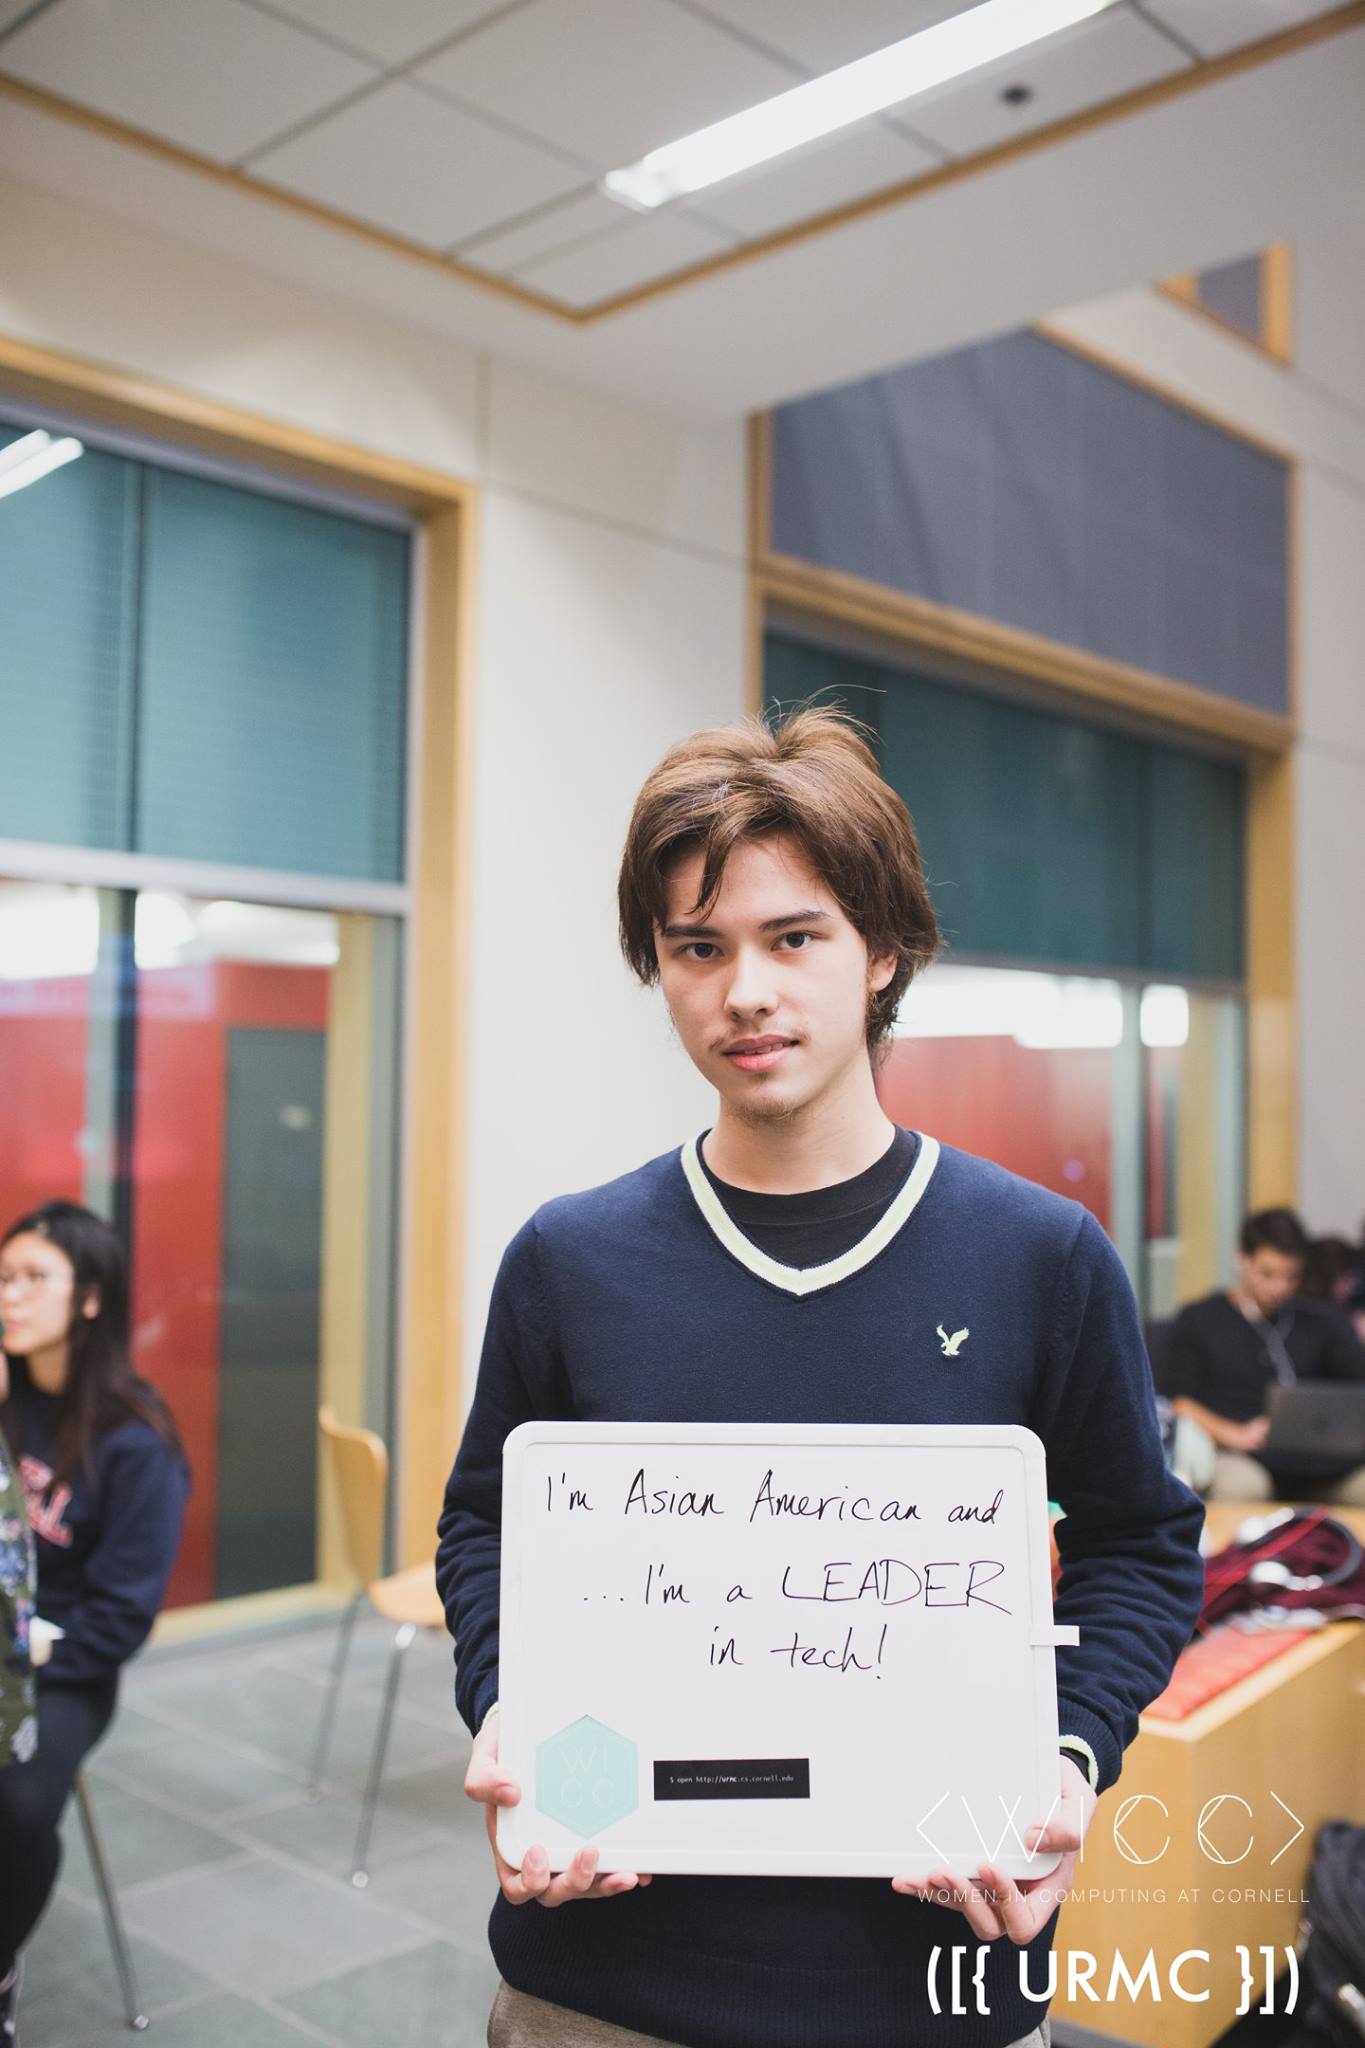 I'm Asian American and
...I'm a LEADER
in tech!
WI
CC
$ open http://urmc.cs.cornell.edu
<WICC>
WOMEN IN COMPUTING AT CORNELL
([{ URMC }])